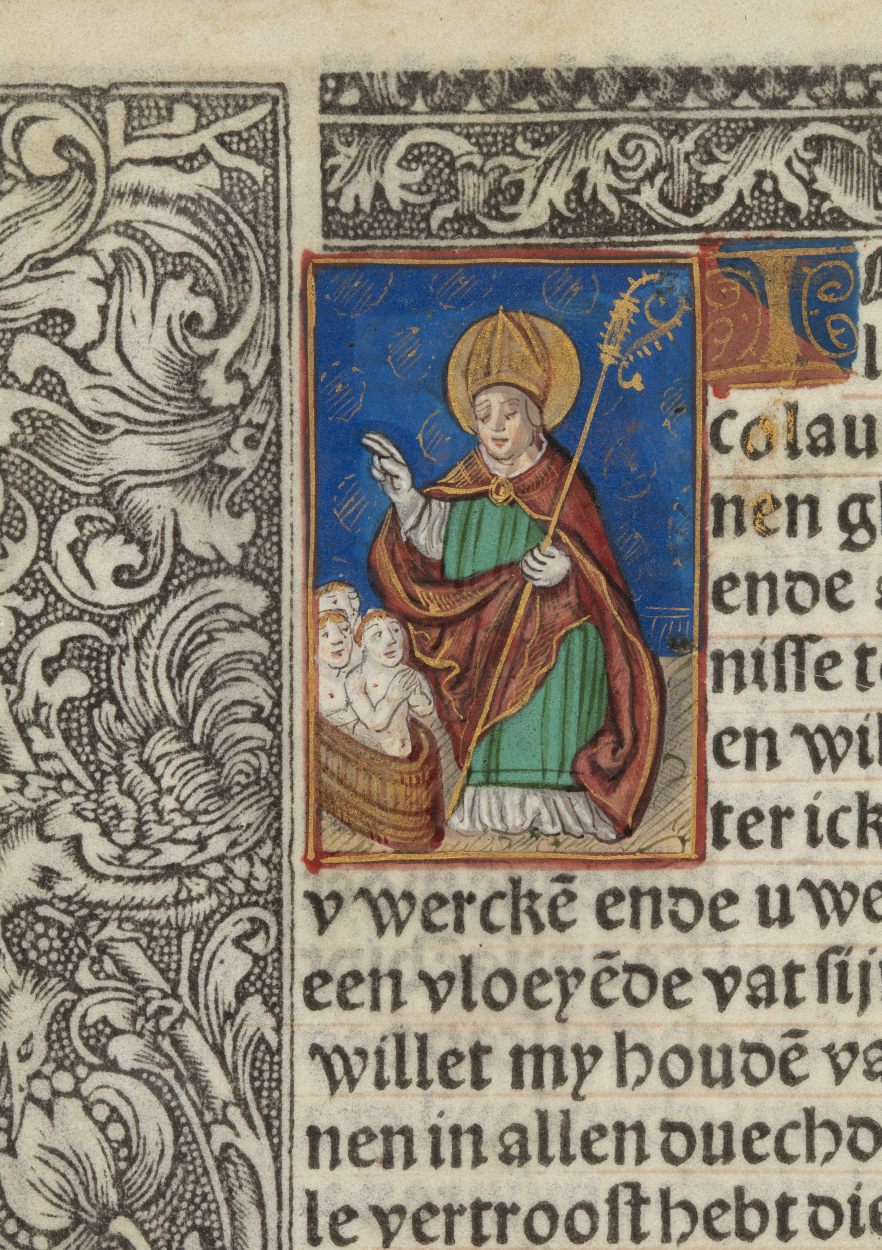 I
colau
nen
ende
nisse
en wil
ter ick
v werckē ende u we
een vloeyēde vat sij
willet my houdē va
nen in allen duechd
le vertroost hebt die